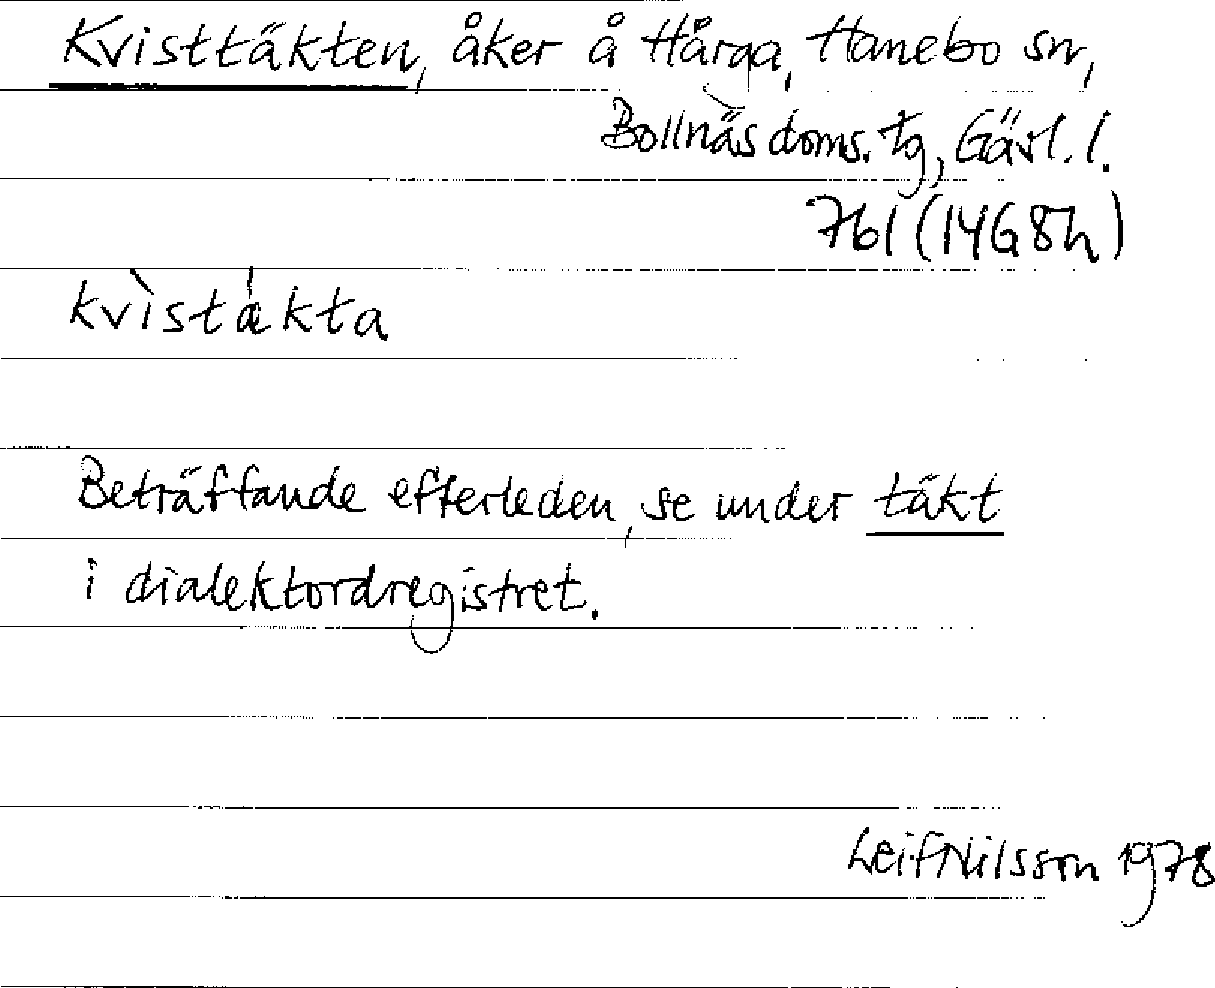 Kvisttäkten, åker å Hårga, Hanebo sn,
Bollnäs doms. tg, Gävl. l.
761 (14G 8h)
kvìstǽkta
Beträffande efterleden, se under täkt
i dialektordregistret.
Leif Nilsson 1978